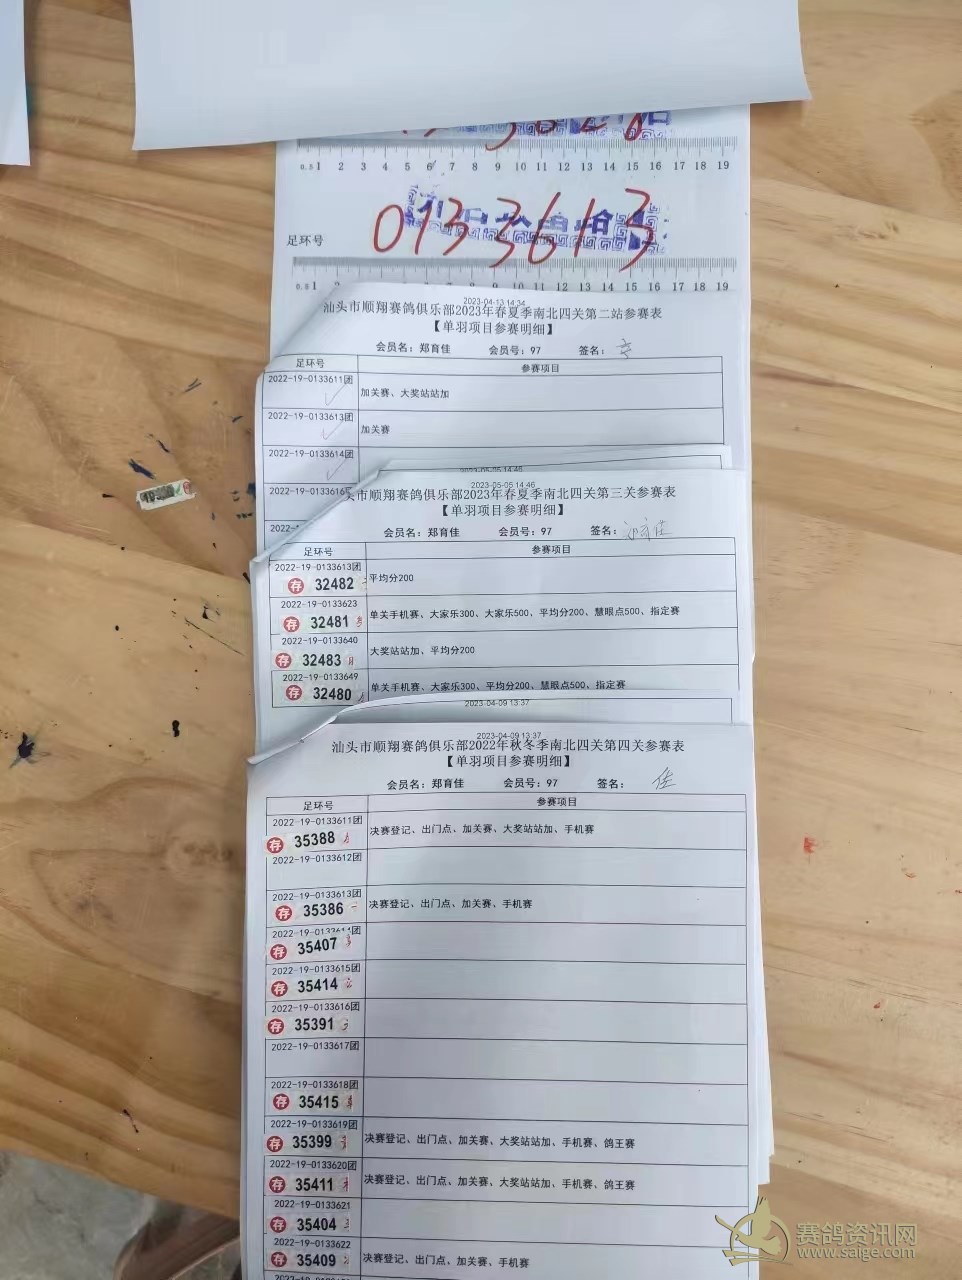 0.5 1 2 3 4 5 6 7 8 9 10 11 12 13 14 15 16 17 18 19
足环号
0133613
0.5 1 2 3 4 5 6 7 8 9 10 11 12 13 14 15 16 17 18 19
2023-04-13 14:34
汕头市顺翔赛鸽俱乐部2023年春夏季南北四关第二站参赛表
【单羽项目参赛明细】
会员名：郑育佳 会员号：97 签名：
足环号 参赛项目
2022-19-0133611团 加关赛、大奖站站加
2022-19-0133613团 加关赛
2022-19-0133614团
2022-19-0133616
2022-
2023-05-05 14:46
2023-05-05 14:46
头市顺翔赛鸽俱乐部2023年春夏季南北四关第三关参赛表
【单羽项目参赛明细】
会员名：郑育佳 会员号：97 签名：郑育佳
足环号 参赛项目
2022-19-0133613团
存 32482 平均分200
2022-19-0133623
存 32481 单关手机赛、大家乐300、大家乐500、平均分200、慧眼点500、指定赛
2022-19-0133640
存 32483 大奖站站加、平均分200
2022-19-0133649
存 32480 单关手机赛、大家乐300、平均分200、慧眼点500、指定赛
2023-04-09 13:37
2023-04-09 13:37
汕头市顺翔赛鸽俱乐部2022年秋冬季南北四关第四关参赛表
【单羽项目参赛明细】
会员名：郑育佳 会员号：97 签名：佳
足环号 参赛项目
2022-19-0133611团
存 35388 决赛登记、出门点、加关赛、大奖站站加、手机赛
2022-19-0133612团
2022-19-0133613团
存 35386 决赛登记、出门点、加关赛、手机赛
2022-19-0133614团
存 35407
2022-19-0133615团
存 35414
2022-19-0133616团
存 35391
2022-19-0133617
2022-19-0133618团
存 35415
2022-19-0133619团
存 35399 决赛登记、出门点、加关赛、大奖站站加、手机赛、鸽王赛
2022-19-0133620团
存 35411 决赛登记、出门点、加关赛、大奖站站加、手机赛、鸽王赛
2022-19-0133621
存 35404
2022-19-0133622
存 35409 决赛登记、出门点、加关赛、手机赛
赛鸽资讯网
www.saige.com